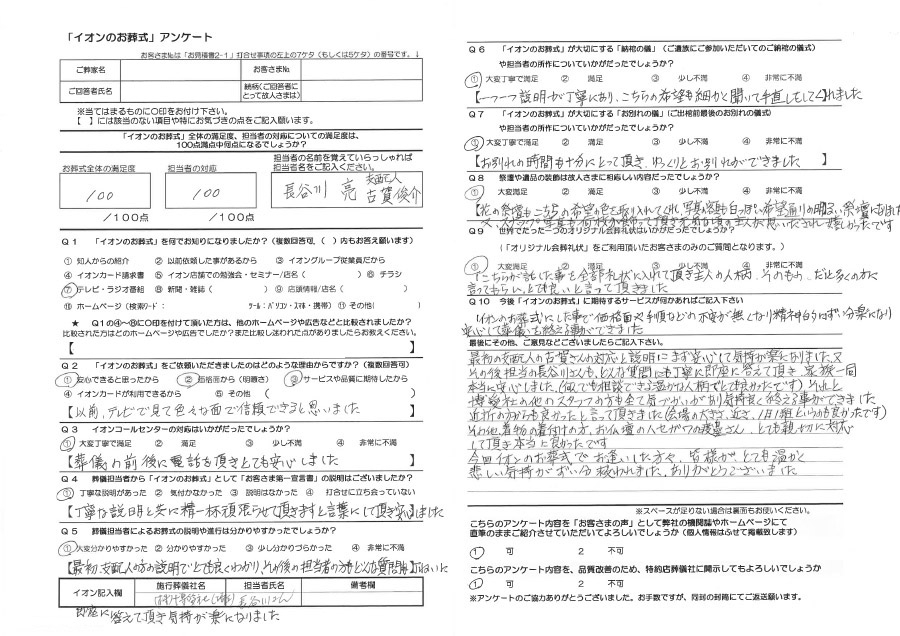 「イオンのお葬式」アンケート
お客さま№は「お見積書2-1」打合せ事項の左上の7ケタ（もしくは5ケタ）の番号です。↓
ご葬家名 お客さま№
ご回答者氏名 続柄(ご回答者に
とって故人さまは)
※当てはまるものに○印をお付け下さい。
【 】には該当のない項目や特にお気づきの点をご記入願います。
「イオンのお葬式」全体の満足度、担当者の対応についての満足度は、
100点満点中何点になるでしょうか?
お葬式全体の満足度 担当者の対応 担当者の名前を覚えていらっしゃれば
担当者名をご記入ください。
100 100 長谷川 亮 支配人 古賀俊介
/100点 /100点
Q1 「イオンのお葬式」を何でお知りになりましたか?（複数回答可、（ ）内もお答え願います）
① 知人からの紹介 ② 以前依頼した事があるから ③ イオングループ従業員だから
④ イオンカード請求書 ⑤ イオン店舗での勉強会・セミナー/店名( ) ⑥ チラシ
⑦ テレビ・ラジオ番組 ⑧ 新聞・雑誌( ) ⑨ 店頭情報/店名( )
⑩ ホームページ（検索ﾜｰﾄﾞ: ﾂｰﾙ:ﾊﾟｿｺﾝ・ｽﾏﾎ・携帯） ⑪ その他( )
★ Q1の④～⑧に○印を付けて頂いた方は、他のホームページや広告などと比較されましたか?
比較された方はどのホームページや広告でしたか?また比較し迷われた点がありましたらお教えください。
【 】
Q2 「イオンのお葬式」をご依頼いただきましたのはどのような理由からですか?（複数回答可）
① 安心できると思ったから ② 価格面から（明瞭さ） ③ サービスや品質に期待したから
④ イオンカードが利用できるから ⑤ その他（ ）
【以前、テレビで見て色々な面で信頼できると思いました 】
Q3 イオンコールセンターの対応はいかがだったでしょうか?
① 大変丁寧で満足 ② 満足 ③ 少し不満 ④ 非常に不満
【葬儀の前後に電話を頂きとても安心しました 】
Q4 葬儀担当者から「イオンのお葬式」として「お客さま第一宣言書」の説明はございましたか?
① 丁寧な説明があった ② 気付かなかった ③ 説明はなかった ④ 打合せに立ち会っていない
【丁寧な説明と共に精一杯頑張らせて頂きますと言葉にして頂き安心しました
Q5 葬儀担当者によるお葬式の説明や進行は分かりやすかったでしょうか?
① 大変分かりやすかった ② 分かりやすかった ③ 少し分かりづらかった ④ 非常に不満
【最初、支配人の方の説明でとても良くわかり、その後の担当者の方もどんな質問
イオン記入欄 施行葬儀社名 担当者氏名 備考欄
長谷川さん
即座に答えて頂き気持が楽になりました
Q6 「イオンのお葬式」が大切にする「納棺の儀」（ご遺族にご参加いただいてのご納棺の儀式）
や担当者の所作についていかがだったでしょうか?
① 大変丁寧で満足 ② 満足 ③ 少し不満 ④ 非常に不満
【一つ一つ説明が丁寧にあり、こちらの希望も細かく聞いて手直しもしてくれました
Q7 「イオンのお葬式」が大切にする「お別れの儀」（ご出棺前最後のお別れの儀式）
や担当者の所作についていかがだったでしょうか?
① 大変丁寧で満足 ② 満足 ③ 少し不満 ④ 非常に不満
【お別れの時間も十分にとって頂き、ゆっくりとお別れができました 】
Q8 祭壇や遺品の装飾は故人さまに相応しい内容だったでしょうか?
① 大変満足 ② 満足 ③ 少し不満 ④ 非常に不満
【花の祭壇もこちらの希望の色を取り入れてくれ、写真の額も白っぽい希望通りの明るい祭壇になりました
Q9 世界でたった一つのオリジナル会葬礼状はいかがだったでしょうか?
（「オリジナル会葬礼状」をご利用頂いたお客さまのみのご質問となります。）
① 大変満足 ② 満足 ③ 少し不満 ④ 非常に不満
【こちらが話した事を全部礼状に入れて頂き主人の人柄、そのもの、だと多くの方に
言ってもらい、とても良いと言って頂きました
Q10 今後「イオンのお葬式」に期待するサービスが何かあればご記入下さい
イオンのお葬式にした事で価格面や手順などの不安が無くなり精神的にずい分楽になり
安心して葬儀を終える事ができました
最後にその他、ご意見などございましたらご記入下さい。
最初の支配人の古賀さんの対応と説明にまず安心して気持が楽になりました。又
その後担当の長谷川さんも、どんな質問にも丁寧に即座に答えて頂き、家族一同
本当に安心しました。(何でも相談できる温かな人柄でとても良かったです) それと
博愛社の他のスタッフの方も全て気づかいがあり気持良く終える事ができました
近所の方からも良かったと言って頂きました(会場の大きさ、近さ、1日1組というのも良かったです)
その他、着物の着付けの方、お仏壇の人 とても親切に対応
して頂き本当に良かったです
今回イオンのお葬式でお逢いした方々、皆様がとても温かく
悲しい気持がずい分救われました。ありがとうございました
※スペースが足りない場合は裏面もお使いください。
こちらのアンケート内容を「お客さまの声」として弊社の機関誌やホームページにて
直筆のままご紹介させていただいてよろしいでしょうか（個人情報はふせて掲載致します）
1 可 2 不可
こちらのアンケート内容を、品質改善のため、特約店葬儀社に開示してもよろしいでしょうか
1 可 2 不可
※アンケートのご協力ありがとうございました。お手数ですが、同封の封筒にてご返送願います。